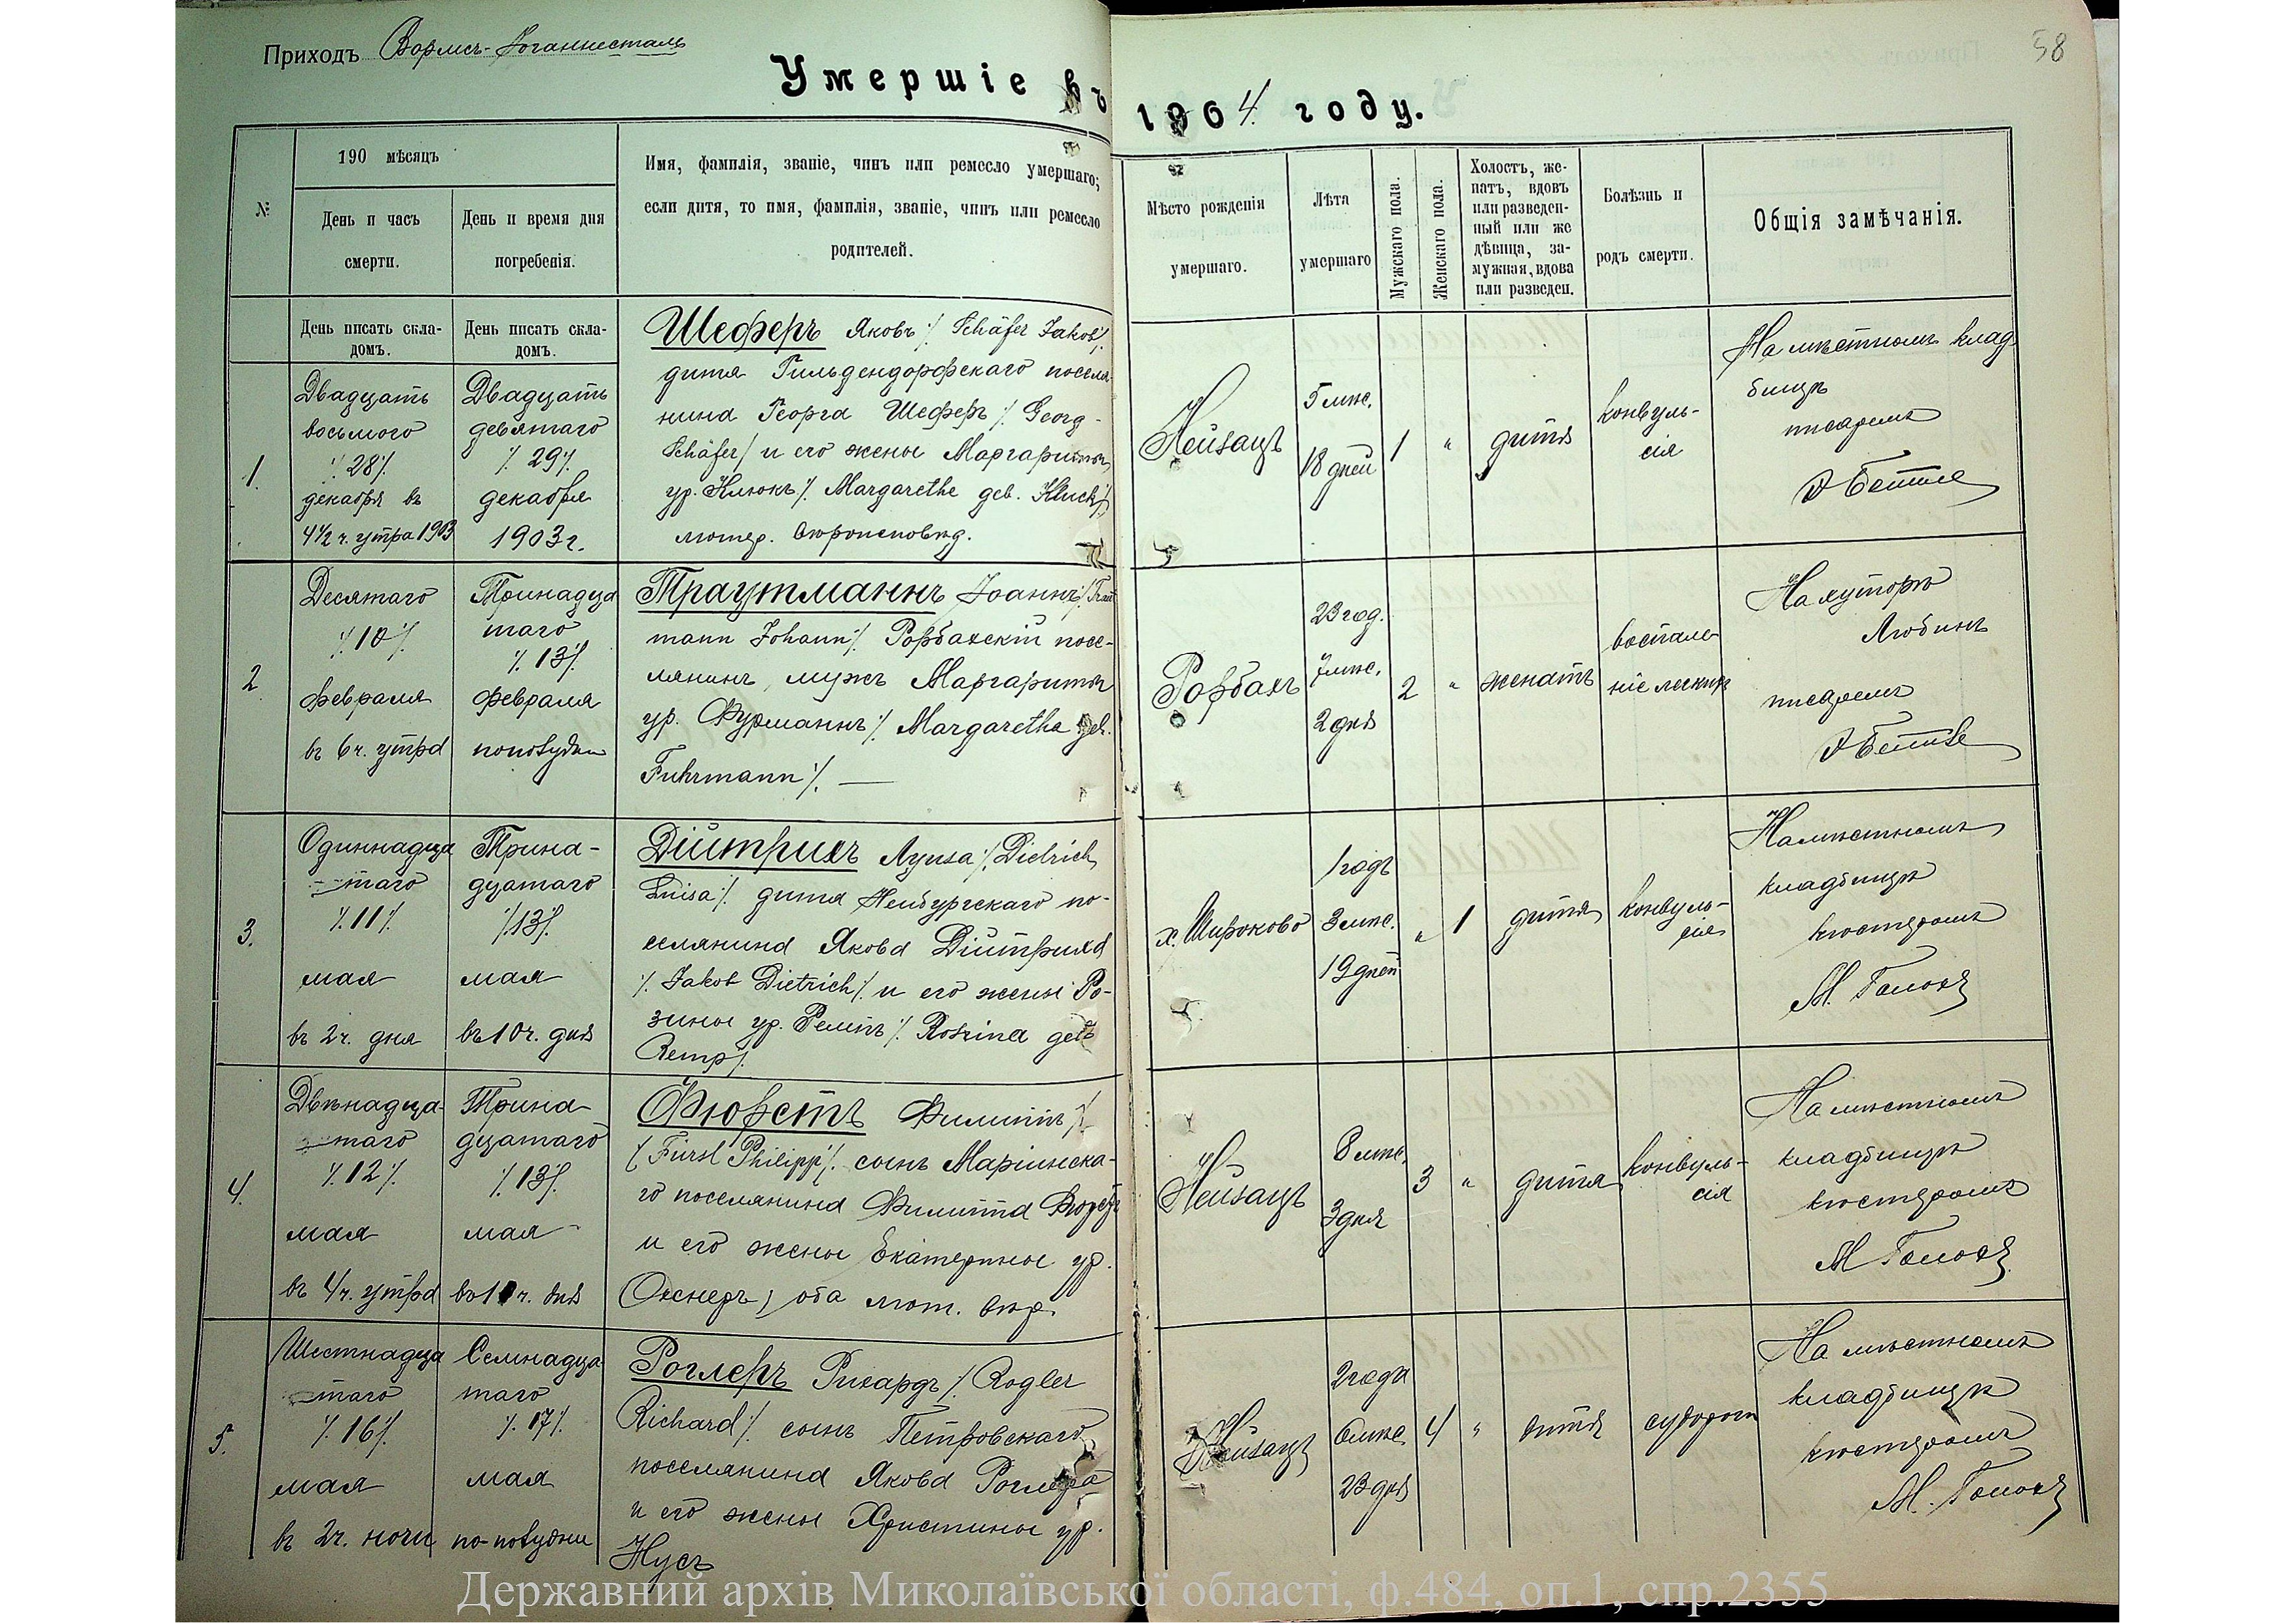 Приходъ Вормсъ-Іоганнесталь
58
Умершіе въ 1904 году.
№
190 мѣсяцъ
День и часъ
смерти.
День и время дня
погребенія.
Имя, фамилія, званіе, чинъ или ремесло умершаго;
если дитя, то имя, фамилія, званіе, чинъ или ремесло
родителей.
Мѣсто рожденія
умершаго.
Лѣта
умершаго
Мужскаго пола.
Женскаго пола.
Холостъ, же-
натъ, вдовъ
или разведен-
ный или же
дѣвица, за-
мужняя, вдова
или разведен.
Болѣзнь и
родъ смерти.
Общія замѣчанія.
День писать скла-
домъ.
День писать скла-
домъ.
1.
Двадцать
восьмого
⁒ 28 ⁒
декабря въ
4 1/2 ч. утра 1903
Двадцать
девятаго
⁒ 29 ⁒
декабря
1903 г.
Шеферъ Яковъ ⁒ Schäfer Jakob ⁒
дитя Гильдендорфскаго поселя
нина Георга Шеферъ ⁒ Georg
Schäfer / и его жены Маргариты
ур. Клюкъ ⁒ Margarethe geb. Kluck ⁒
лютер. вѣроисповѣд.
Нейзацъ
5 мѣс.
18 дней
1
"
дитя
конвуль-
сія
На мѣстномъ клад
бищѣ
писаремъ
2
Десятаго
⁒ 10 ⁒
февраля
въ 6 ч. утра
Тринадца
таго
⁒ 13 ⁒
февраля
пополудни
Траутманнъ Іоаннъ ⁒ Traut
mann Johann ⁒ Рорбахскій посе-
лянинъ, мужъ Маргариты
ур. Фурманнъ ⁒ Margaretha geb.
Fuhrmann ⁒. —
Рорбахъ
23 год.
7 мѣс.
2 дня
2
"
женатъ
воспале
ніе легкихъ
На хуторѣ
Любинъ
писаремъ
3.
Одиннадца
таго
⁒ 11 ⁒
мая
въ 2 ч. дня
Трина-
дцатаго
⁒ 13 ⁒
мая
въ 10 ч. дня
Дійтрихъ Луиза ⁒ Dietrich
Luisa ⁒ дитя Нейбургскаго по-
селянина Якова Дійтриха
⁒ Jakob Dietrich ⁒ и его жены Ро-
зины ур. Ремпъ ⁒ Rosina geb
Remp ⁒
х. Широково
1 годъ
3 мѣс.
19 дней
"
1
дитя
конвуль-
сія
На мѣстномъ
кладбищѣ
кюстеромъ
4.
Двѣнадца
таго
⁒ 12 ⁒
мая
въ 4 ч. утра
Трина-
дцатаго
⁒ 13 ⁒
мая
въ 10 ч. дня
Фюрстъ Филиппъ ⁒
( Fürst Philipp ⁒ сынъ Маріинска-
го поселянина Филиппа Фюрстъ
и его жены Екатерины ур.
Окснеръ, оба лют. вѣр.
Нейзацъ
8 мѣс.
3 дня
3
"
дитя
конвуль-
сія
На мѣстномъ
кладбищѣ
кюстеромъ
5.
Шестнадца
таго
⁒ 16 ⁒
мая
въ 2 ч. ночи
Семнадца
таго
⁒ 17 ⁒
мая
по-полудни
Роглеръ Рихардъ ⁒ Rogler
Richard ⁒ сынъ Петровскаго
поселянина Якова Роглера
и его жены Христины ур.
Нусъ
Нейзацъ
2 года
6 мѣс.
23 дня
4
"
дитя
судороги
На мѣстномъ
кладбищѣ
кюстеромъ
Державний архів Миколаївської області, ф.484, оп.1, спр.2355